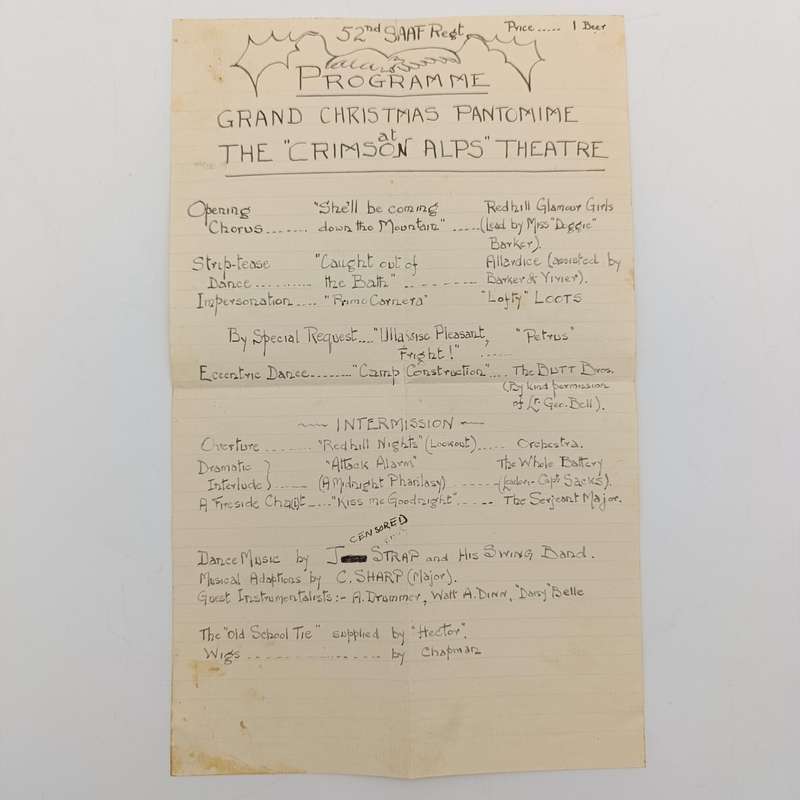 52nd SAAF Regt.
Price..... 1 Beer
PROGRAMME
GRAND CHRISTMAS PANTOMIME
at
THE "CRIMSON ALPS" THEATRE
Opening "She'll be coming Redhill Glamour Girls
Chorus....... down the Mountain" .....(lead by Miss "Duggie"
Barker).
Strip-tease "Caught out of Allardice (assisted by
Dance .......... the Bath" .......... Barker & Vivier).
Impersonation .... "Primo Carnera" "Lofty" LOOTS
By Special Request .... "Ullawise Pleasant, "Petrus"
Fright!" ......
Eccentric Dance........ "Camp Construction" .... The BUTT Bros.
(By kind permission
of Lt. Geo. Bell).
INTERMISSION
Overture ......... "Redhill Nights" (Lookout)..... Orchestra.
Dramatic "Attack Alarm" The Whole Battery
Interlude ...... (A Midnight Phantasy) ......(Leader - Capt SACKS).
A Fireside Cha(n)t .... "Kiss me Goodnight" ...... The Serjeant Major.
CENSORED
Dance Music by J STRAP and His SWING Band.
Musical Adaptions by C. SHARP (Major).
Guest Instrumentalists:- A. Drummer, Watt A. Dinn, "Daisy" Belle
The "Old School Tie" supplied by "Hector".
Wigs .................. by Chapman